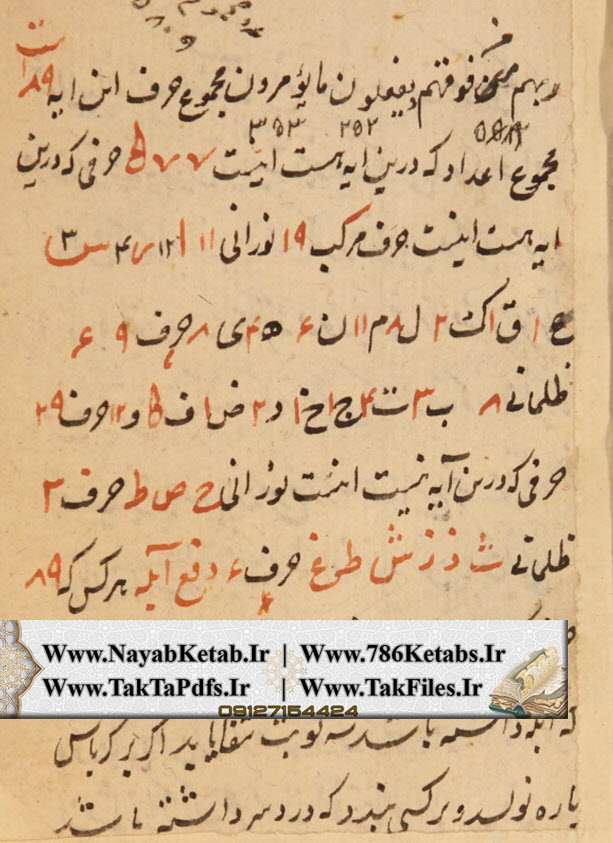 ربهم من فوقهم و یفعلون ما یؤمرون مجموع حرف این ایه ۸۹
۳۵۳ ۲۵۲
مجموع اعداد که درین ایه هست اینست ۷۷ حرفی که درین
ایه هست اینست حرف مرکب ۱۹ نورانی ۱۱ ا ۱۲ ر ۴ س ۳
ع ۱ ق ۱ ک ۲ ل ۸ م ۱۱ ن ۶ ه ۴ ی ۸ حرف ۹ ۶
ظلمانی ۸ ب ۳ ت ۴ ج ۱ خ ۱ د ۲ ض ۱ ف و ۱۲ حرف ۲۹
حرفی که درین آیه نیست اینست نورانی ح ص ط حرف ۳
ظلمانی ث ذ ز ش ظ غ حرف ۶ دفع آبله هرکس که ۸۹
Www.NayabKetab.Ir | Www.786Ketabs.Ir
Www.TakTaPdfs.Ir | Www.TakFiles.Ir
09127154424
که ابله داشته باشد سه نوبت شفا یابد اگر بر کرباس
پاره نویسد و بر کسی بندد که درد سر داشته باشد